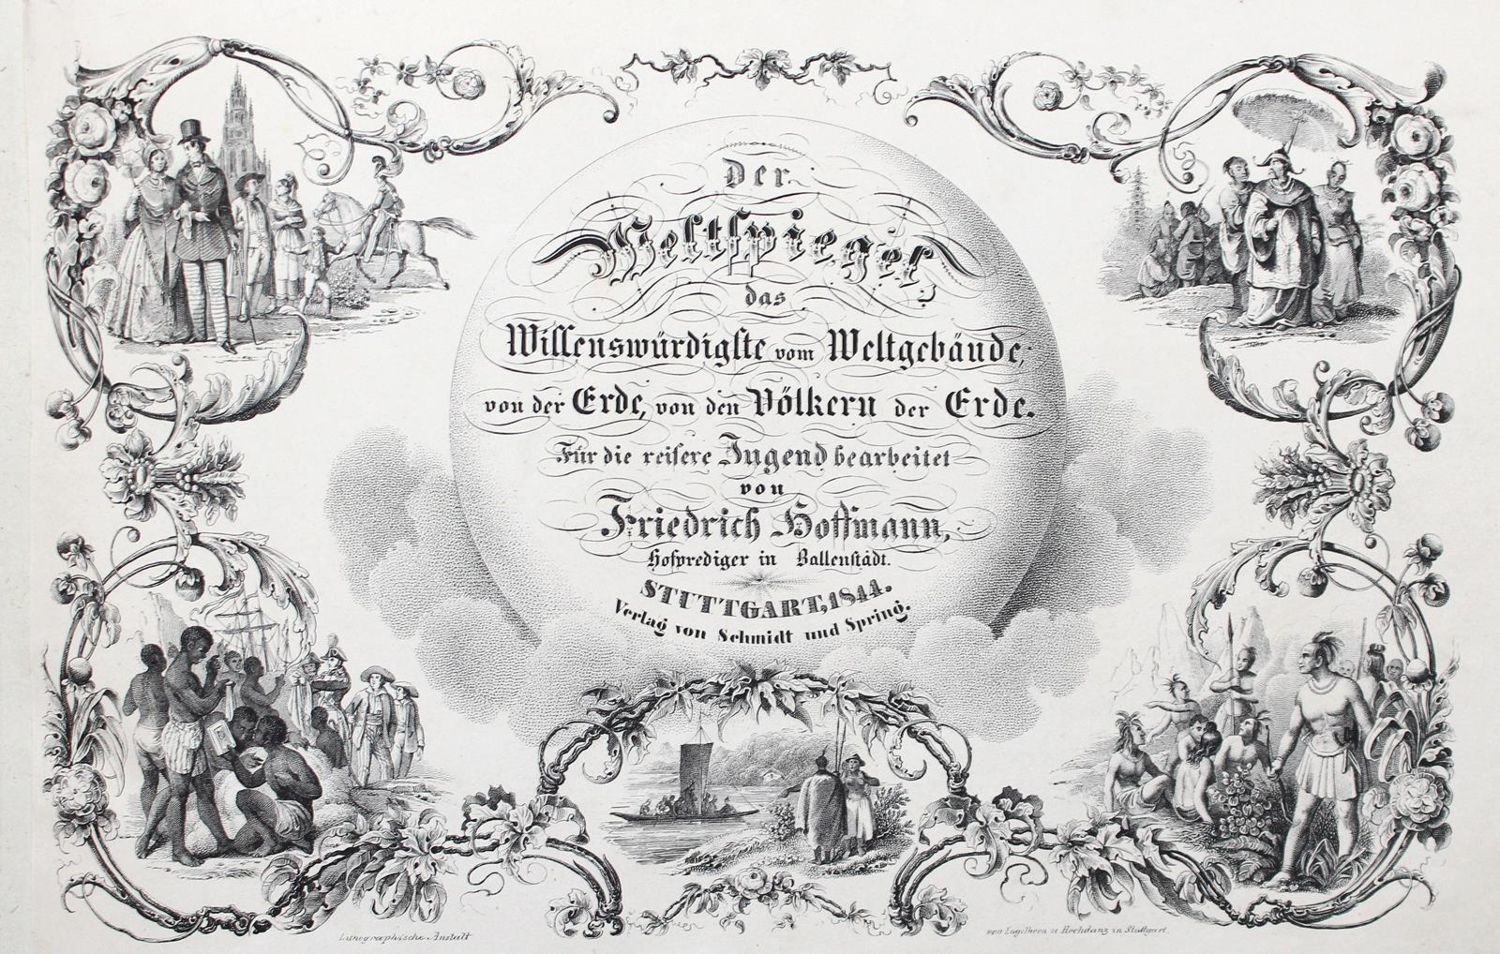 Der
Weltspiegel,
das
Wissenswürdigste vom Weltgebäude,
von der Erde, von den Völkern der Erde.
Für die reifere Jugend bearbeitet
von
Friedrich Hoffmann,
Hofprediger in Ballenstädt.
STUTTGART, 1844.
Verlag von Schmidt und Spring.
Lithographische Anstalt
von Engelhorn u Hochdanz in Stuttgart.